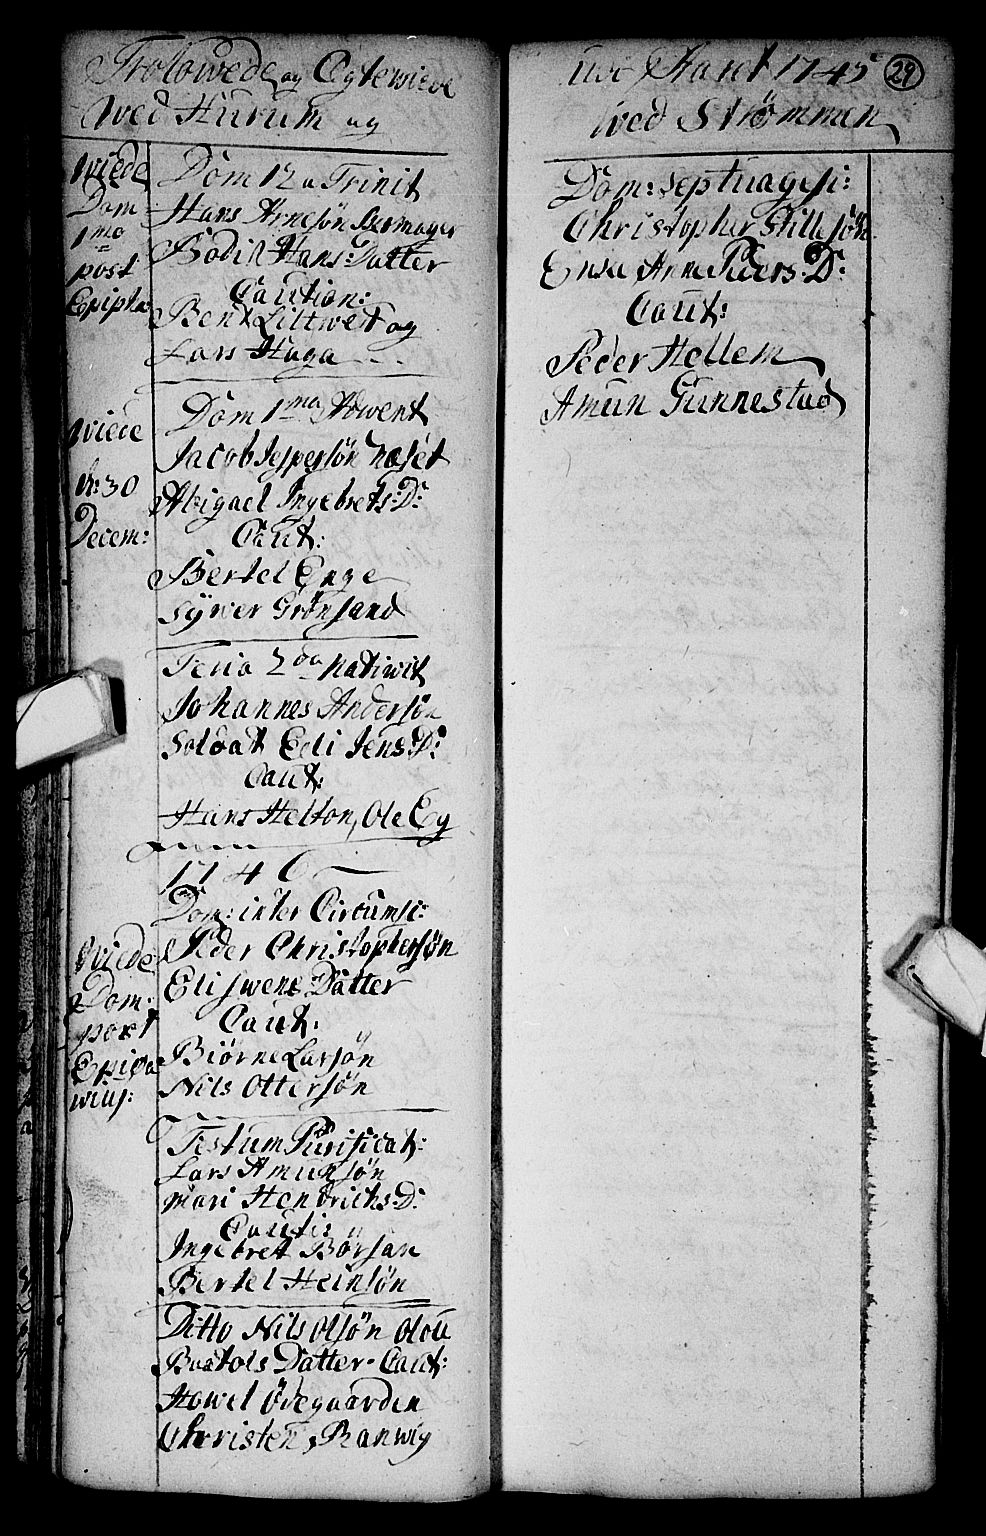 Trolowede og Egtewiede
wed Hurum og
Wiede
Dom
1mo
post
Epipha:
Dom 12 a Trinit
Hans Arnesön
Bodil Hans: Datter
Caution:
Bent Littwet og
Lars Haga
Wiede
d: 30
Decem:
Dom 1ma Adwent
Jacob Jespersön Næset
Abigael Ingebrets: D:
Caut:
Bertel Enge
Sywer Grönsand
Feria 2da Natiwit
Johannes Andersön
Soldat Eli Jens: D:
Caut:
Hans Helton, Ole Eg
1746
Wiede
Dom:
post
Dom: inter Circumsi:
Peder Christophersön
Eli Swens Datter
Caut:
Biörne Larsön
Nils Ottersön
Festum Purificat:
Lars Amunsön
Mari Hendrichs: D:
Cauti:
Ingebret Börsan
Bertel Heinsön
Ditto Nils Olsön
Datter. Caut:
Howel Ödegaarden
Christen Ranwig
udi Aaret 1745
29
wed Strömmen
Dom: Septuagesi:
Christopher Stillesön
Enke Anne Peders D:
Caut:
Peder Hellem
Amun Gunnestad